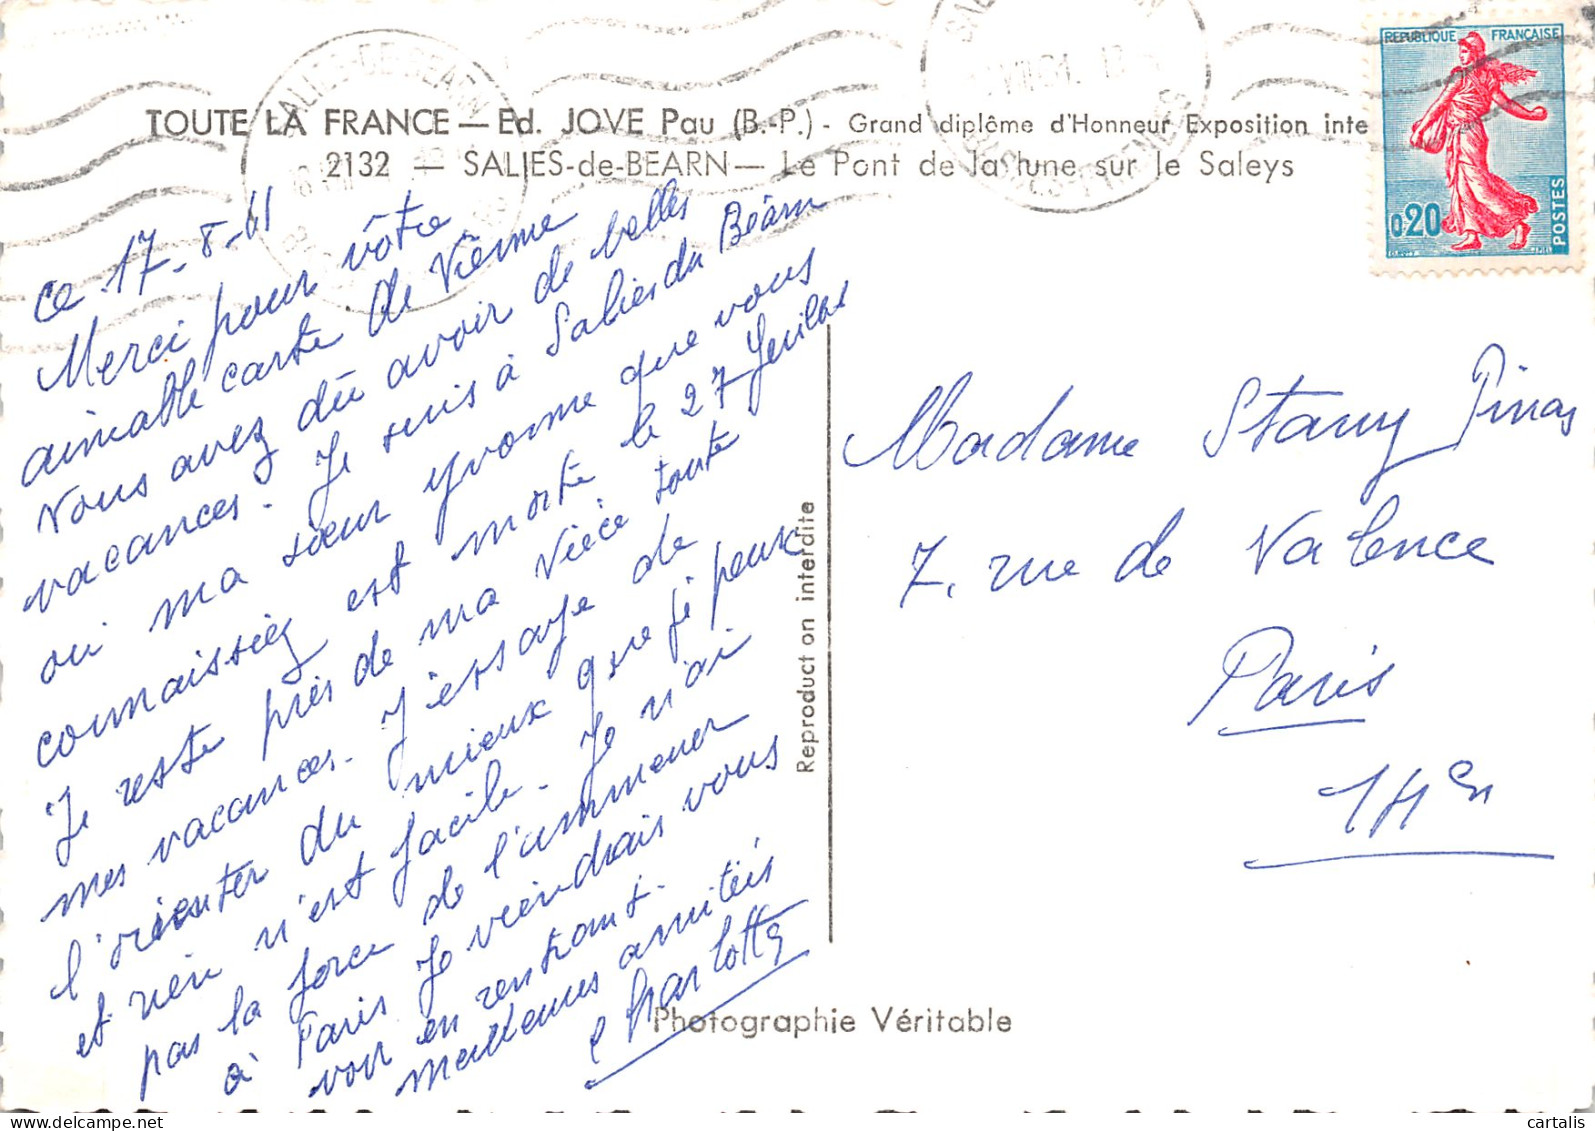 TOUTE LA FRANCE — Ed. JOVE Pau (B.-P.) - Grand diplôme d'Honneur Exposition inte
2132 — SALIES-de-BEARN — Le Pont de la lune sur le Saleys
SALIES-DE-BEARN
REPUBLIQUE FRANÇAISE
0,20
POSTES
ce 17-8-61
Merci pour vôtre
aimable carte de Vienne
Vous avez dû avoir de belles
vacances. Je suis à Salies du Béarn
où ma sœur Yvonne que vous
connaissiez est morte le 27 Juillet
Je reste près de ma Nièce toute
mes vacances. J'essaye de
l'orienter du mieux que je peux
et rien n'est facile. Je n'ai
pas la force de l'emmener
à Paris Je viendrais vous
voir en rentrant.
Meilleures amitiés
Charlotte
Reproduct on interdite
Photographie Véritable
Madame Stany Pinas
7, rue de Valence
Paris
cartalis